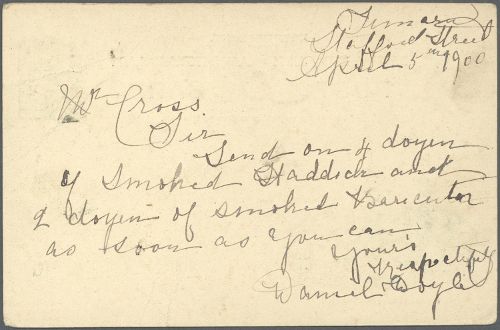 Timaru
Stafford Street
April 5th 1900
Mr Cross
Sir
Send on 4 doyen
of smoked Haddick and
2 doyen of smoked
as soon as you can
Yours
Respectfuly
Daniel Doyle